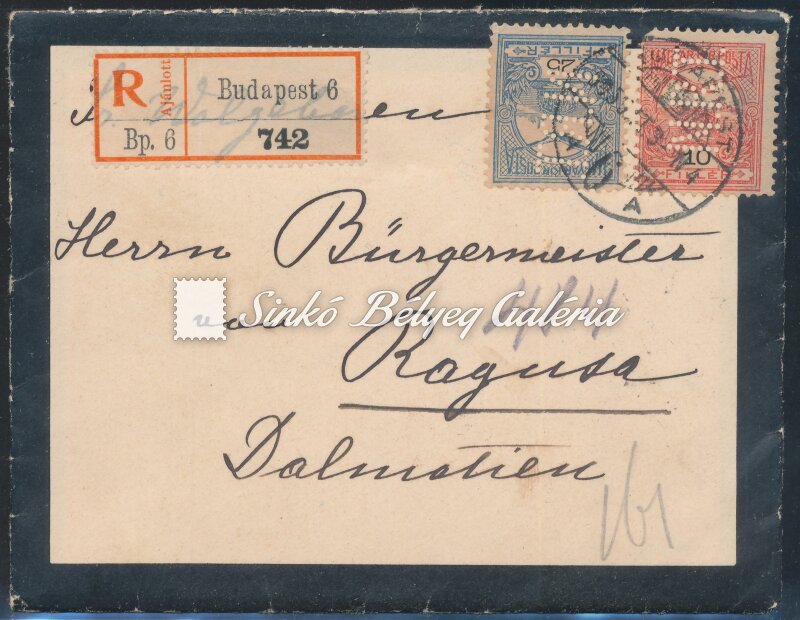 R Ajánlott Budapest 6
Bp. 6 742
Sr. Wolgeboren
25 FILLÉR
MAGYAR POSTA
MAGYAR POSTA
10
FILLÉR
BUDAPEST
A
Herrn Bürgermeister
von
Sinkó Bélyeg Galéria
Ragusa
Dalmatien
161